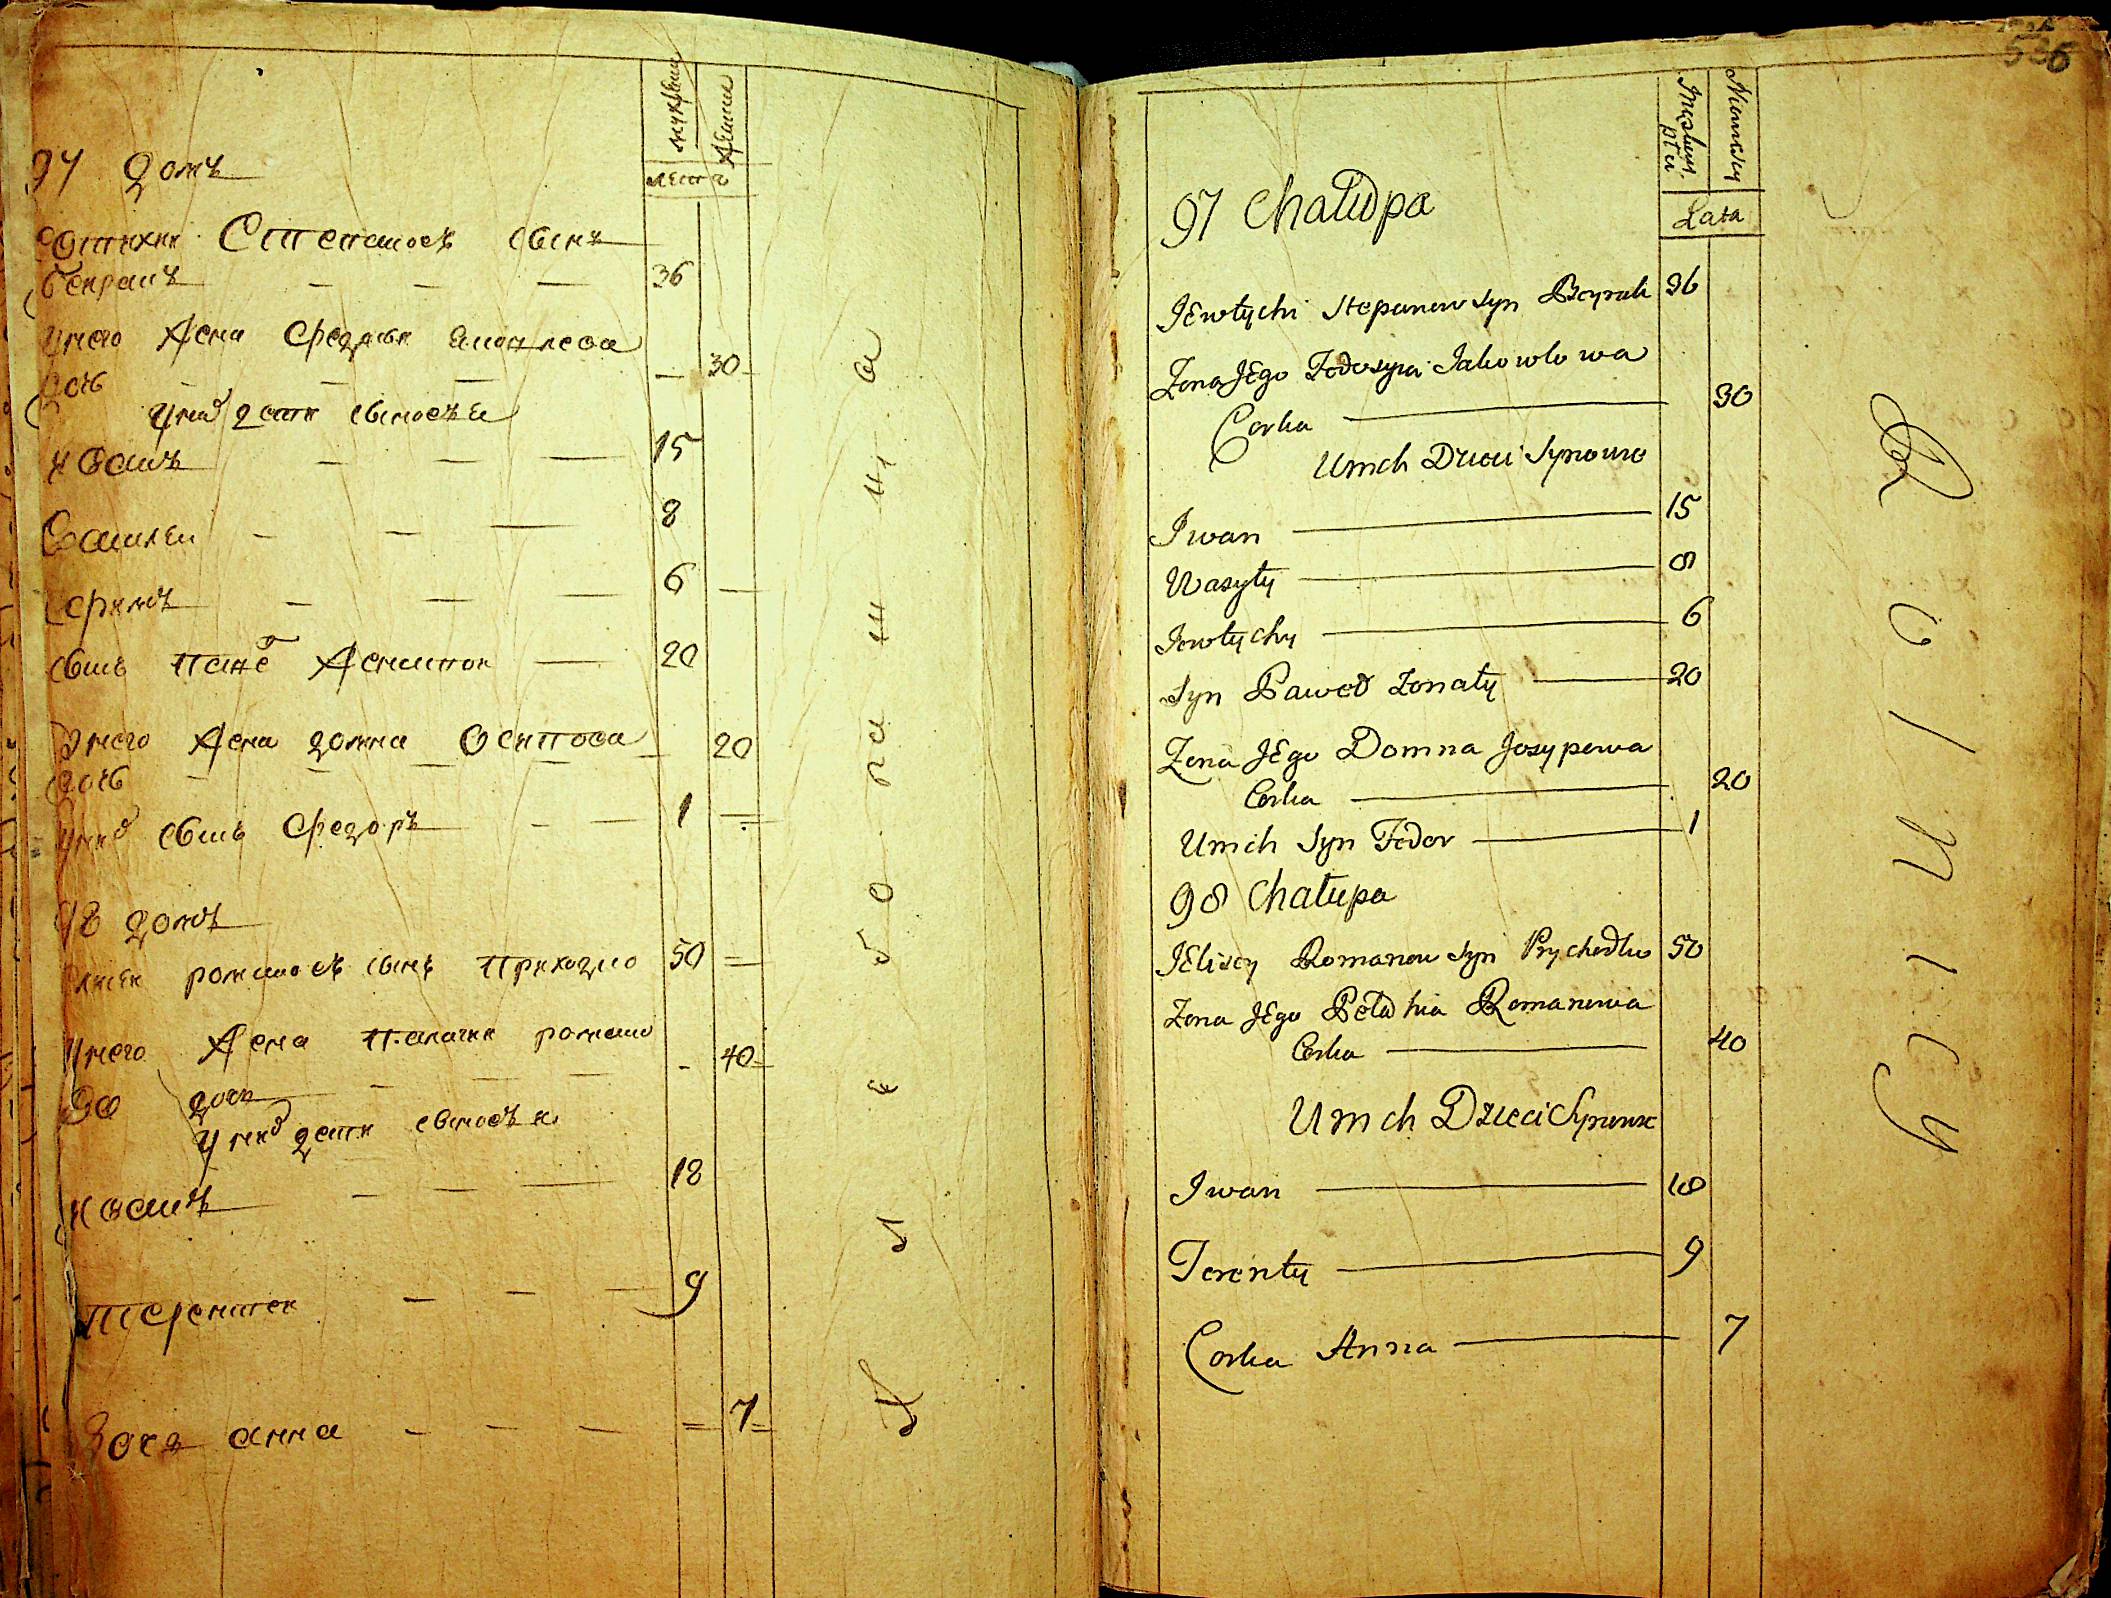 мужеска
женска
лета
97 домъ
Евтихии Степановъ сынъ
36
у него жена Федосия Яковлева
дочь
30
у них дети сыновья
Иванъ 15
Василеи 8
6
сынъ женатои 20
у него жена Домна Осипова
дочь
20
у них сынъ Федоръ 1
98 домъ
Елисеи Романовъ сынъ Приходко 50
у него жена Пелагия Романо
ва дочь
40
у них дети сыновья
Иванъ 18
Терентеи 9
дочь Анна 7
хлеборашина
536
Męskiey płci
Niewiescy
Lata
97 Chałupa
JEwtychi Stepanow Syn 36
Zona JEgo Fedosyia Jakowlowa
Corka 30
U nich Dzieci Synowie
Iwan 15
Wasyly 8
Jewtychy 6
Syn Paweł Zonaty 20
Zona JEgo Domna Josypowa
Corka 20
U nich Syn Fedor 1
98 Chałupa
JElisey Romanow Syn Prychodko 50
Zona JEgo Pelahia Romanowa
Corka 40
U nich Dzieci Synowie
Iwan 18
Terenty 9
Corka Anna 7
Rolnicy